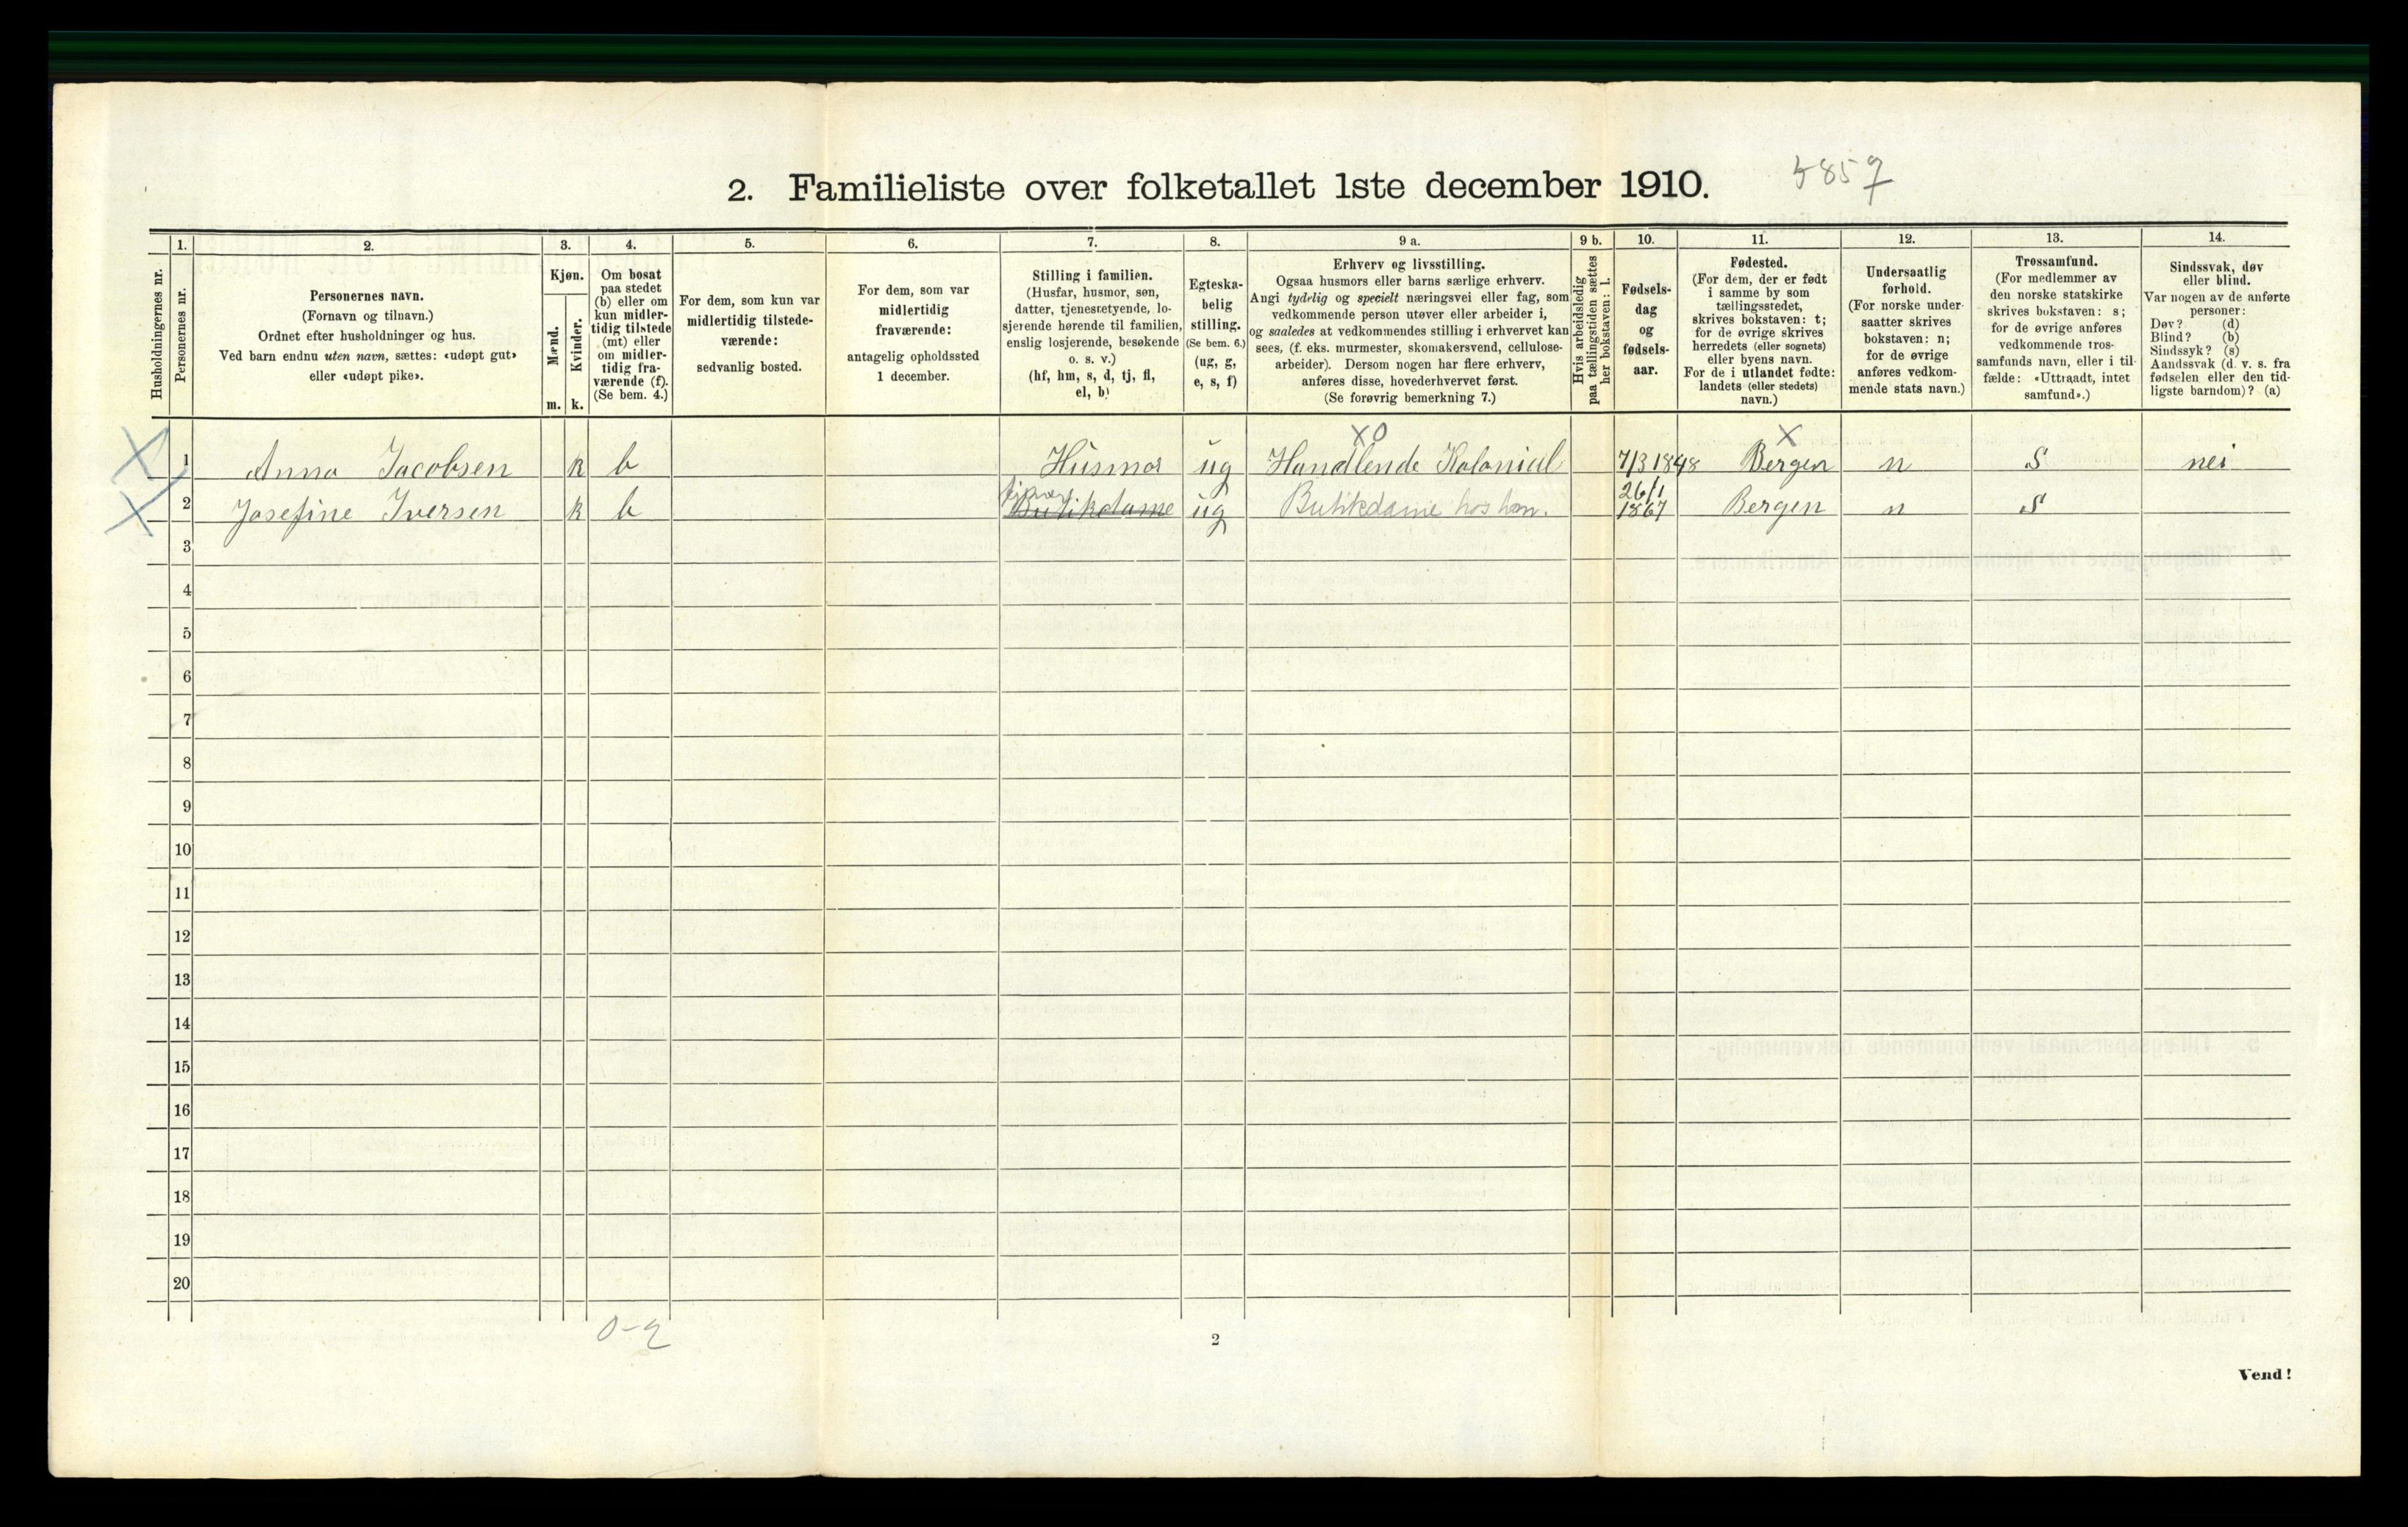 2. Familieliste over folketallet 1ste december 1910. 5857
Husholdningernes nr.
1.
Personernes nr.
2.
Personernes navn.
(Fornavn og tilnavn.)
Ordnet efter husholdninger og hus.
Ved barn endnu uten navn, sættes: «udøpt gut»
eller «udøpt pike».
3.
Kjøn.
Mænd.
Kvinder.
m. k.
4.
Om bosat
paa stedet
(b) eller om
kun midler-
tidig tilstede
(mt) eller
om midler-
tidig fra-
værende (f).
(Se bem. 4.)
5.
For dem, som kun var
midlertidig tilstede-
værende:
sedvanlig bosted.
6.
For dem, som var
midlertidig
fraværende:
antagelig opholdssted
1 december.
7.
Stilling i familien.
(Husfar, husmor, søn,
datter, tjenestetyende, lo-
sjerende hørende til familien,
enslig losjerende, besøkende
o. s. v.)
(hf, hm, s, d, tj, fl,
el, b)
8.
Egteska-
belig
stilling.
(Se bem. 6.)
(ug, g,
e, s, f)
9 a.
Erhverv og livsstilling.
Ogsaa husmors eller barns særlige erhverv.
Angi tydelig og specielt næringsvei eller fag, som
vedkommende person utøver eller arbeider i,
og saaledes at vedkommendes stilling i erhvervet kan
sees, (f. eks. murmester, skomakersvend, cellulose-
arbeider). Dersom nogen har flere erhverv,
anføres disse, hovederhvervet først.
(Se forøvrig bemerkning 7.)
9 b.
Hvis arbeidsledig
paa tællingstiden sættes
her bokstaven: l.
10.
Fødsels-
dag
og
fødsels-
aar.
11.
Fødested.
(For dem, der er født
i samme by som
tællingsstedet,
skrives bokstaven: t;
for de øvrige skrives
herredets (eller sognets)
eller byens navn.
For de i utlandet fødte:
landets (eller stedets)
navn.)
12.
Undersaatlig
forhold.
(For norske under-
saatter skrives
bokstaven: n;
for de øvrige
anføres vedkom-
mende stats navn.)
13.
Trossamfund.
(For medlemmer av
den norske statskirke
skrives bokstaven: s;
for de øvrige anføres
vedkommende tros-
samfunds navn, eller i til-
fælde: «Uttraadt, intet
samfund».)
14.
Sindssvak, døv
eller blind.
Var nogen av de anførte
personer:
Døv? (d)
Blind? (b)
Sindssyk? (s)
Aandssvak (d. v. s. fra
fødselen eller den tid-
ligste barndom)? (a)
X0 X
X 1 Anna Jacobsen k b Husmor ug Handlende Kolonial 7/3 1848 Bergen n S nei
26/1
X 2 Josefine Iversen k b Butikdame ug Butikdame hos ham. 1867 Bergen n S
3
4
5
6
7
8
9
10
11
12
13
14
15
16
17
18
19
20
0-2
2
Vend!